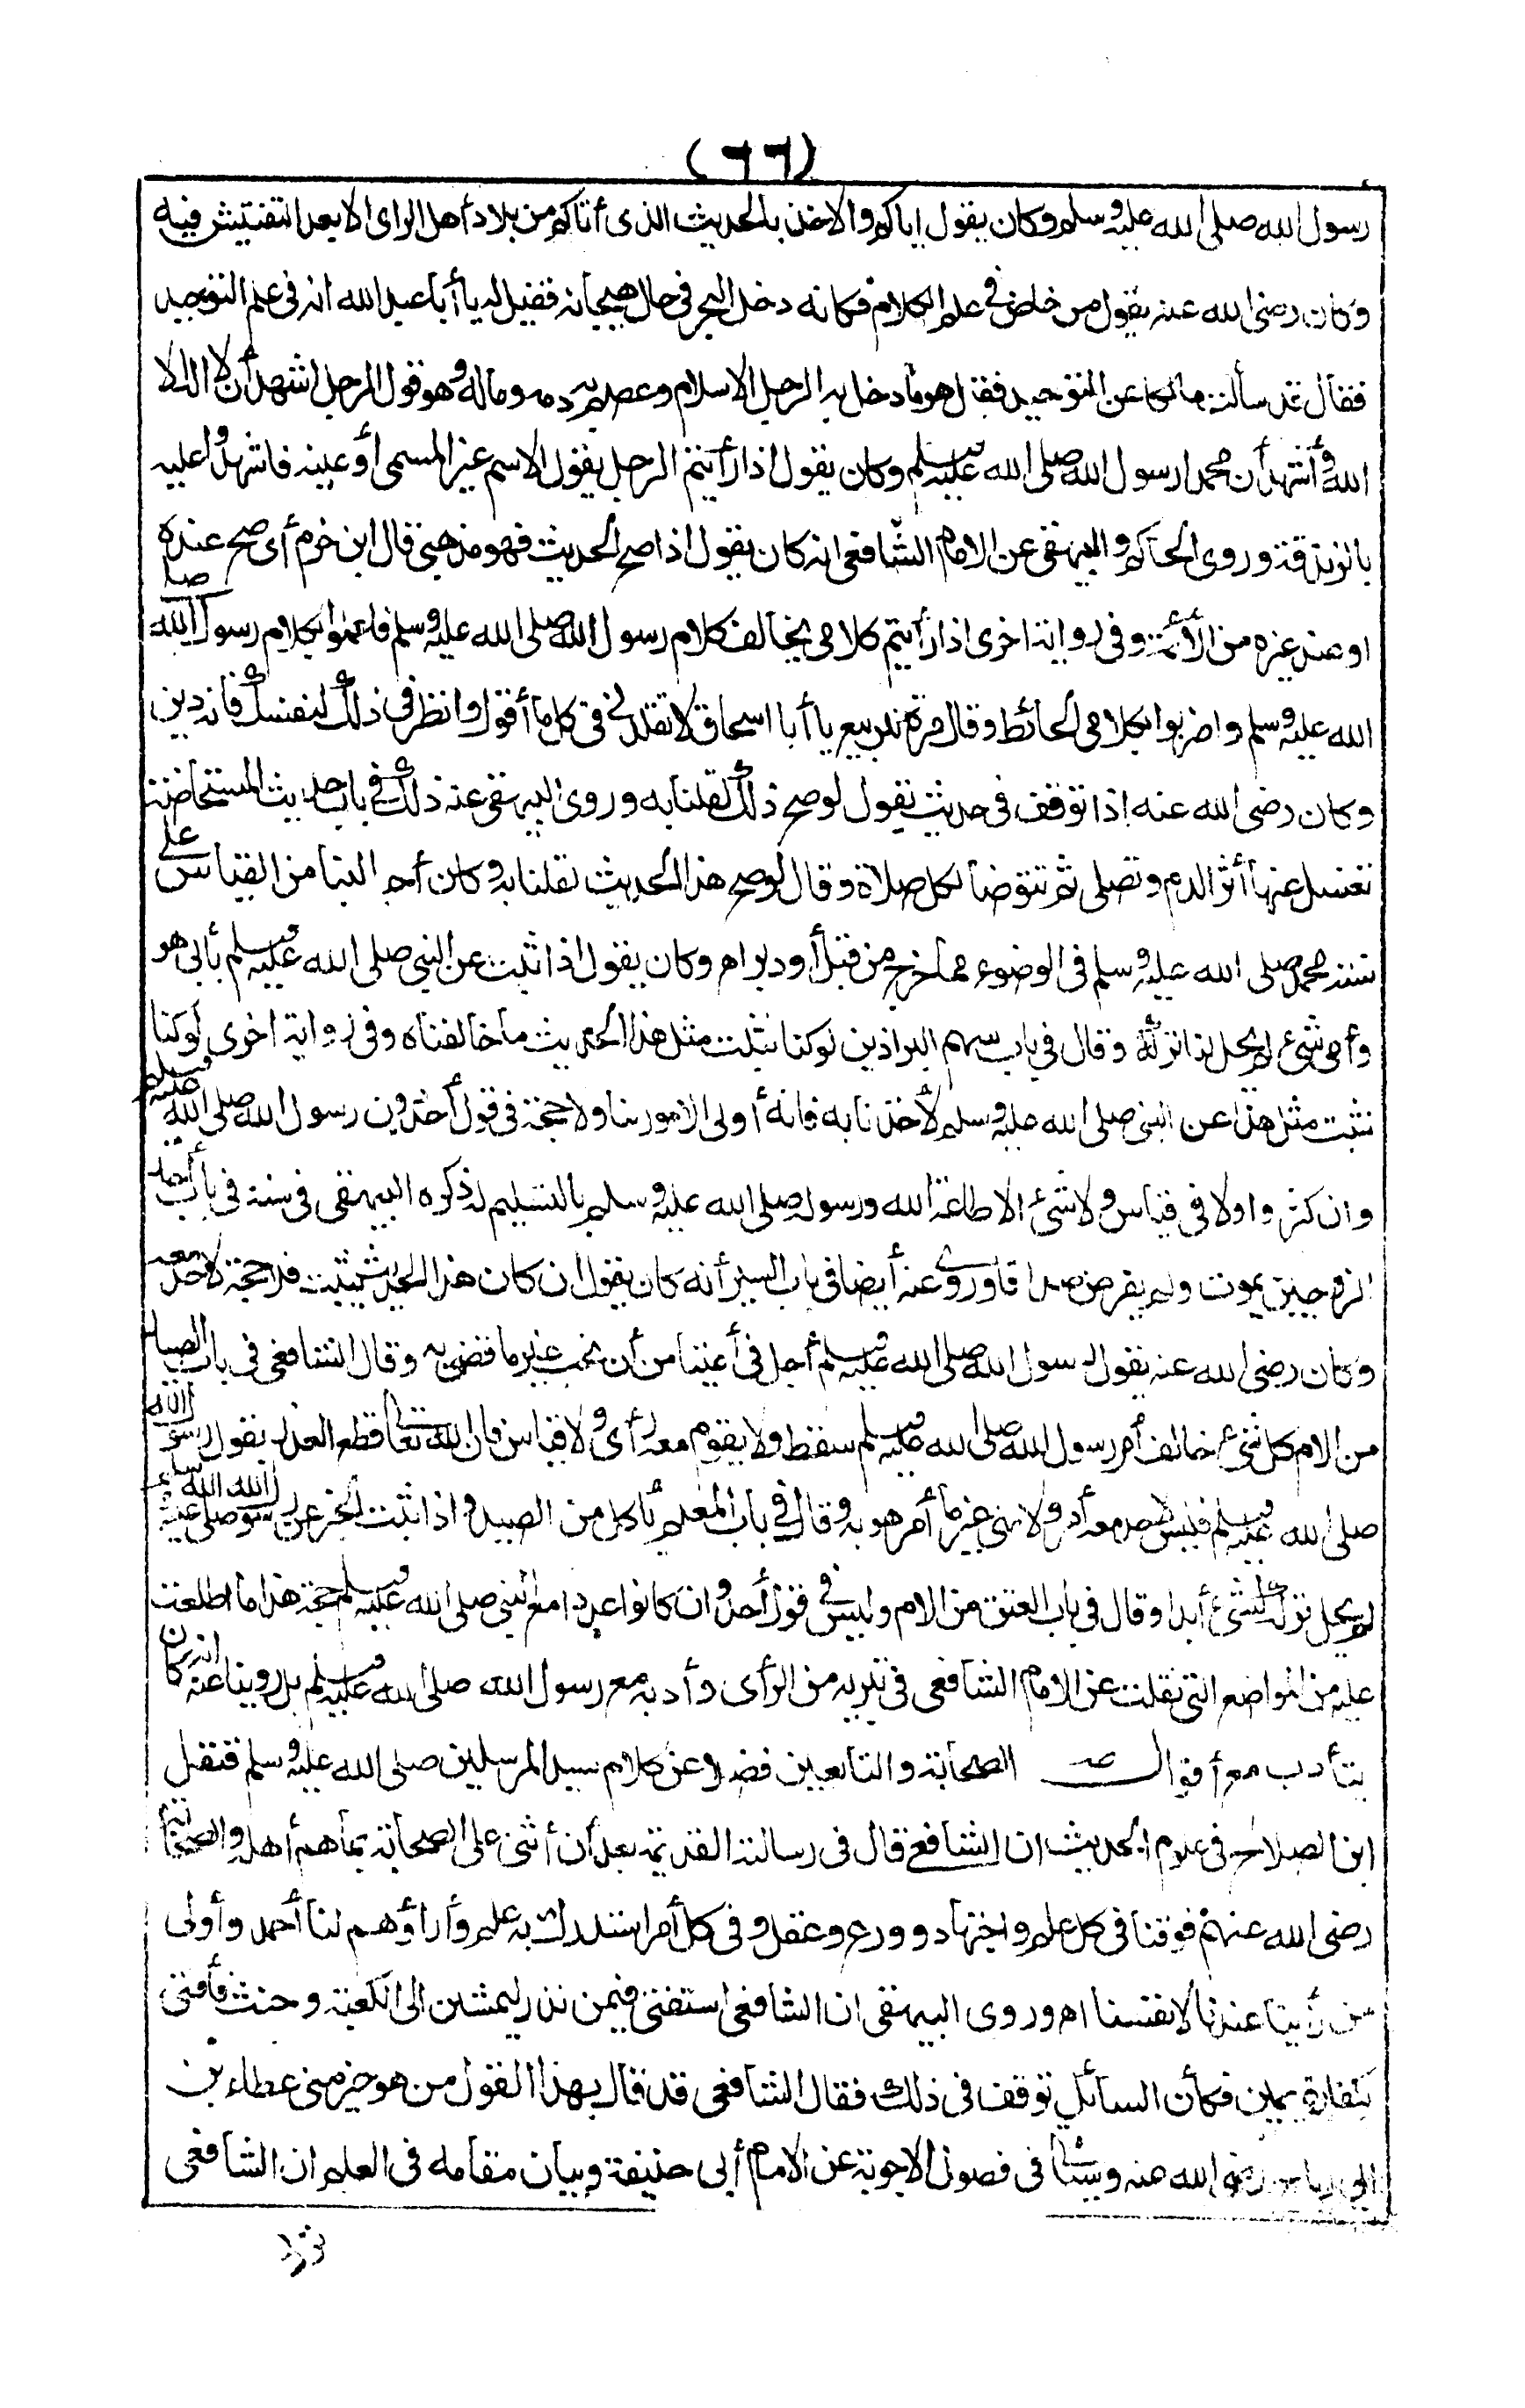 (٦٦)
رسول الله صلى الله عليه وسلم وكان يقول اياكم والاخذ بالحديث الذى أتاكم من بلاد أهل الراى الا بعد التفتيش فيه
وكان رضى الله عنه يقول من خاض فى علم الكلام فكانه دخل البحر فى حال هيجانه فقيل له يا أبا عبد الله انه فى علم التوحيد
فقال قد سألت مالكا عن التوحيد فقال هو ما دخل به الرجل الاسلام وعصم به دمه وماله وهو قول الرجل اشهد أن لا اله الا
الله وأشهد أن محمدا رسول الله صلى الله عليه وسلم وكان يقول اذا رأيتم الرجل يقول الاسم غير المسمى أو عينه فاشهدوا عليه
بالزندقة وروى الحاكم والبيهقى عن الامام الشافعى انه كان يقول اذا صح الحديث فهو مذهبى قال ابن خرم أى صح عنده
او عند غيره من الأئمة وفى رواية اخرى اذا رأيتم كلامى يخالف كلام رسول الله صلى الله عليه وسلم فاعملوا بكلام رسول الله صلى
الله عليه وسلم واضربوا بكلامى الحائط وقال مرة للربيع يا أبا اسحاق لا تقلدنى فى كل ما أقول وانظر فى ذلك لنفسك فانه دين
وكان رضى الله عنه اذا توقف فى حديث يقول لو صح ذلك لقلنا به وروى البيهقى عنه ذلك فى باب حديث المستحاضة
تغسل عنها أثر الدم وتصلى ثم تتوضأ لكل صلاة وقال لو صح هذا الحديث لقلنا به وكان أحب الينا من القياس على
سنة محمد صلى الله عليه وسلم فى الوضوء مما خرج من قبل أو دبر اه وكان يقول اذا ثبت عن النبى صلى الله عليه وسلم بأبى هو
وأمى شئ لم يحل لنا تركه وقال فى باب سهم البراذين لو كنا نثبت مثل هذا الحديث ما خالفناه وفى رواية اخرى لو كنا
نثبت مثل هذا عن النبى صلى الله عليه وسلم لأخذنا به فانه أولى الامور بنا ولا حجة فى قول أحد دون رسول الله صلى الله عليه وسلم
وان كثروا ولا فى قياس ولا شئ الا طاعة الله ورسوله صلى الله عليه وسلم بالتسليم له ذكره البيهقى فى سننه فى باب أحد
الزوجين يموت ولم يفرض صداقا وروى عنه أيضا فى باب السير أنه كان يقول ان كان هذا الحديث يثبت فلا حجة لاحد معه
وكان رضى الله عنه يقول رسول الله صلى الله عليه وسلم أجل فى أعيننا من أن نحب غير ما قضى به وقال الشافعى فى باب الصيد
من الام كل شئ خالف أمر رسول الله صلى الله عليه وسلم سقط ولا يقوم معه رأى ولا قياس فان الله تعالى قطع العذر بقول رسول الله
صلى الله عليه وسلم فليس لاحد معه أمر ولا نهى غير ما أمر هو به وقال فى باب المعلم يأكل من الصيد واذا ثبت الخبر عن رسول الله صلى الله عليه وسلم
لم يحل تركه لشئ أبدا وقال فى باب العتق من الام وليس فى قول أحد وان كانوا عددا مع النبى صلى الله عليه وسلم حجة هذا ما اطلعت
عليه من المواضع التى نقلت عن الامام الشافعى فى تبريه من الرأى وأدبه مع رسول الله صلى الله عليه وسلم بل روينا عنه انه كان
يتأدب مع أقوال الصحابة والتابعين فضلا عن كلام سيد المرسلين صلى الله عليه وسلم فنقل
ابن الصلاح فى علوم الحديث ان الشافعى قال فى رسالته القديمة بعد أن أثنى على الصحابة بما هم أهله والصحابة
رضى الله عنهم فوقنا فى كل علم واجتهاد وورع وعقل وفى كل أمر استدرك به علم وأراؤهم لنا أحمد وأولى
من رأينا عندنا لانفسنا اه وروى البيهقى ان الشافعى استفتى فيمن نذر ليمشين الى الكعبة وحنث فأفتى
بكفارة يمين فكأن السائل توقف فى ذلك فقال الشافعى قد قال بهذا القول من هو خير منى عطاء بن
ابى رباح رضى الله عنه وسيأتى فى فصول الاجوبة عن الامام أبى حنيفة وبيان مقامه فى العلم ان الشافعى